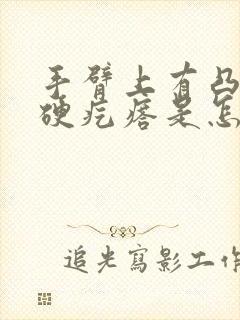 手臂上有凸
硬疙瘩是怎
追光寫影工作